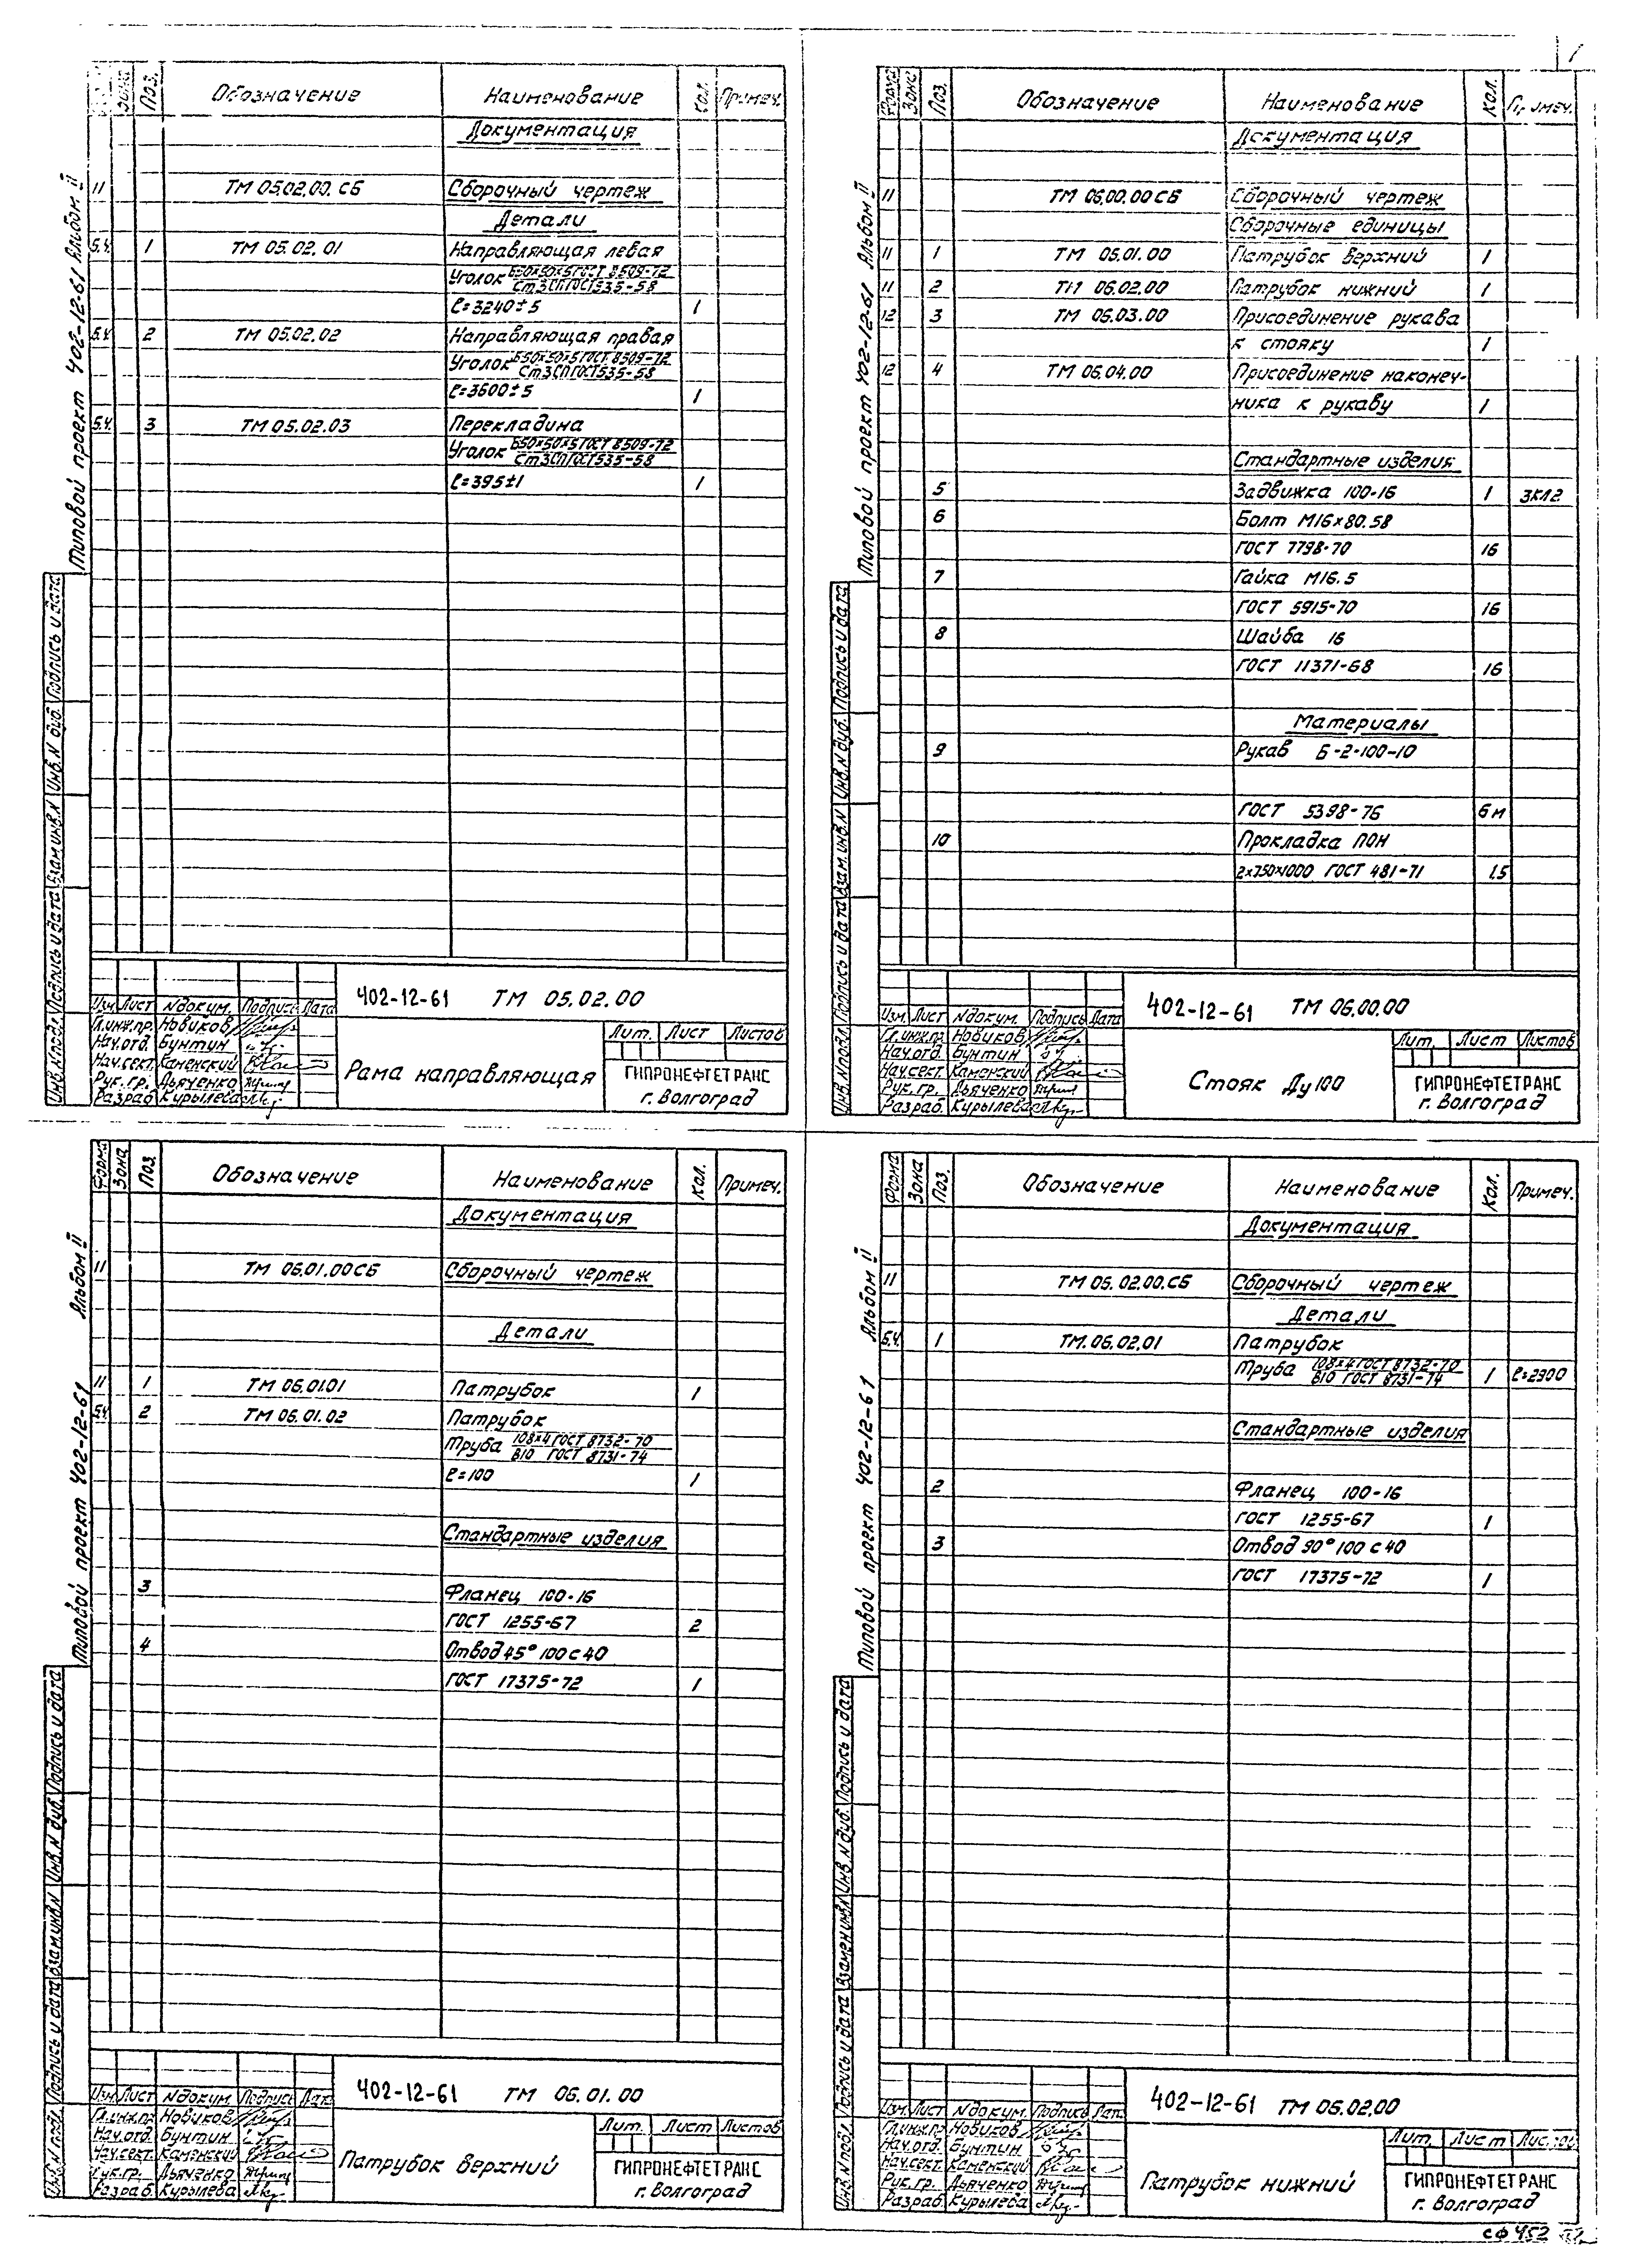 Зона Поз. Обозначение Наименование Кол. Примеч.
Документация
11 ТМ 05.02.00.СБ Сборочный чертеж
Детали
Б.Ч. 1 ТМ 05.02.01 Направляющая левая
Уголок Б50×50×5 ГОСТ 8509-72
Ст3СП ГОСТ 535-58
ℓ=3240±5 1
Б.Ч. 2 ТМ 05.02.02 Направляющая правая
Уголок Б50×50×5 ГОСТ 8509-72
Ст3СП ГОСТ 535-58
ℓ=3600±5 1
Б.Ч. 3 ТМ 05.02.03 Перекладина
Уголок Б50×50×5 ГОСТ 8509-72
Ст3СП ГОСТ 535-58
ℓ=395±1 1
Типовой проект 402-12-61 Альбом II
Инв.N подл. Подпись и дата Взам.инв.N Инв.N дуб. Подпись и дата
402-12-61 ТМ 05.02.00
Изм. Лист N докум. Подпись Дата
Гл.инж.пр. Новиков
Нач.отд. Бунтин
Нач.сект. Каменский
Рук.гр. Дьяченко
Разраб. Курылева
Рама направляющая
Лит. Лист Листов
ГИПРОНЕФТЕТРАНС
г. Волгоград
1
Форма Зона Поз. Обозначение Наименование Кол. Примеч.
Документация
11 ТМ 06.00.00 СБ Сборочный чертеж
Сборочные единицы
11 1 ТМ 06.01.00 Патрубок верхний 1
11 2 ТМ 06.02.00 Патрубок нижний 1
12 3 ТМ 06.03.00 Присоединение рукава
к стояку 1
12 4 ТМ 06.04.00 Присоединение наконеч-
ника к рукаву 1
Стандартные изделия
5 Задвижка 100-16 1 ЗКЛ2
6 Болт М16×80.58
ГОСТ 7798-70 16
7 Гайка М16.5
ГОСТ 5915-70 16
8 Шайба 16
ГОСТ 11371-68 16
Материалы
9 Рукав Б-2-100-10
ГОСТ 5398-76 6 м
10 Прокладка ПОН
2×750×1000 ГОСТ 481-71 1.5
Типовой проект 402-12-61 Альбом II
Инв.N подл. Подпись и дата Взам.инв.N Инв.N дуб. Подпись и дата
402-12-61 ТМ 06.00.00
Изм. Лист N докум. Подпись Дата
Гл.инж.пр. Новиков
Нач.отд. Бунтин
Нач.сект. Каменский
Рук.гр. Дьяченко
Разраб. Курылева
Стояк Ду 100
Лит. Лист Листов
ГИПРОНЕФТЕТРАНС
г. Волгоград
Форма Зона Поз. Обозначение Наименование Кол. Примеч.
Документация
11 ТМ 06.01.00 СБ Сборочный чертеж
Детали
11 1 ТМ 06.01.01 Патрубок 1
Б.Ч. 2 ТМ 06.01.02 Патрубок
Труба 108×4 ГОСТ 8732-70
В10 ГОСТ 8731-74
ℓ=100 1
Стандартные изделия
3 Фланец 100-16
ГОСТ 1255-67 2
4 Отвод 45° 100 с 40
ГОСТ 17375-72 1
Типовой проект 402-12-61 Альбом II
Инв.N подл. Подпись и дата Взам.инв.N Инв.N дуб. Подпись и дата
402-12-61 ТМ 06.01.00
Изм. Лист N докум. Подпись Дата
Гл.инж.пр. Новиков
Нач.отд. Бунтин
Нач.сект. Каменский
Рук.гр. Дьяченко
Разраб. Курылева
Патрубок верхний
Лит. Лист Листов
ГИПРОНЕФТЕТРАНС
г. Волгоград
Форма Зона Поз. Обозначение Наименование Кол. Примеч.
Документация
11 ТМ 06.02.00.СБ Сборочный чертеж
Детали
Б.Ч. 1 ТМ.06.02.01 Патрубок
Труба 108×4 ГОСТ 8732-70
В10 ГОСТ 8731-74 1 ℓ=2900
Стандартные изделия
2 Фланец 100-16
ГОСТ 1255-67 1
3 Отвод 90° 100 с 40
ГОСТ 17375-72 1
Типовой проект 402-12-61 Альбом II
Инв.N подл. Подпись и дата Взамен инв.N Инв.N дуб. Подпись и дата
402-12-61 ТМ 06.02.00
Изм. Лист N докум. Подпись Дата
Гл.инж.пр. Новиков
Нач.отд. Бунтин
Нач.сект. Каменский
Рук.гр. Дьяченко
Разраб. Курылева
Патрубок нижний
Лит. Лист Листов
ГИПРОНЕФТЕТРАНС
г. Волгоград
сф 452